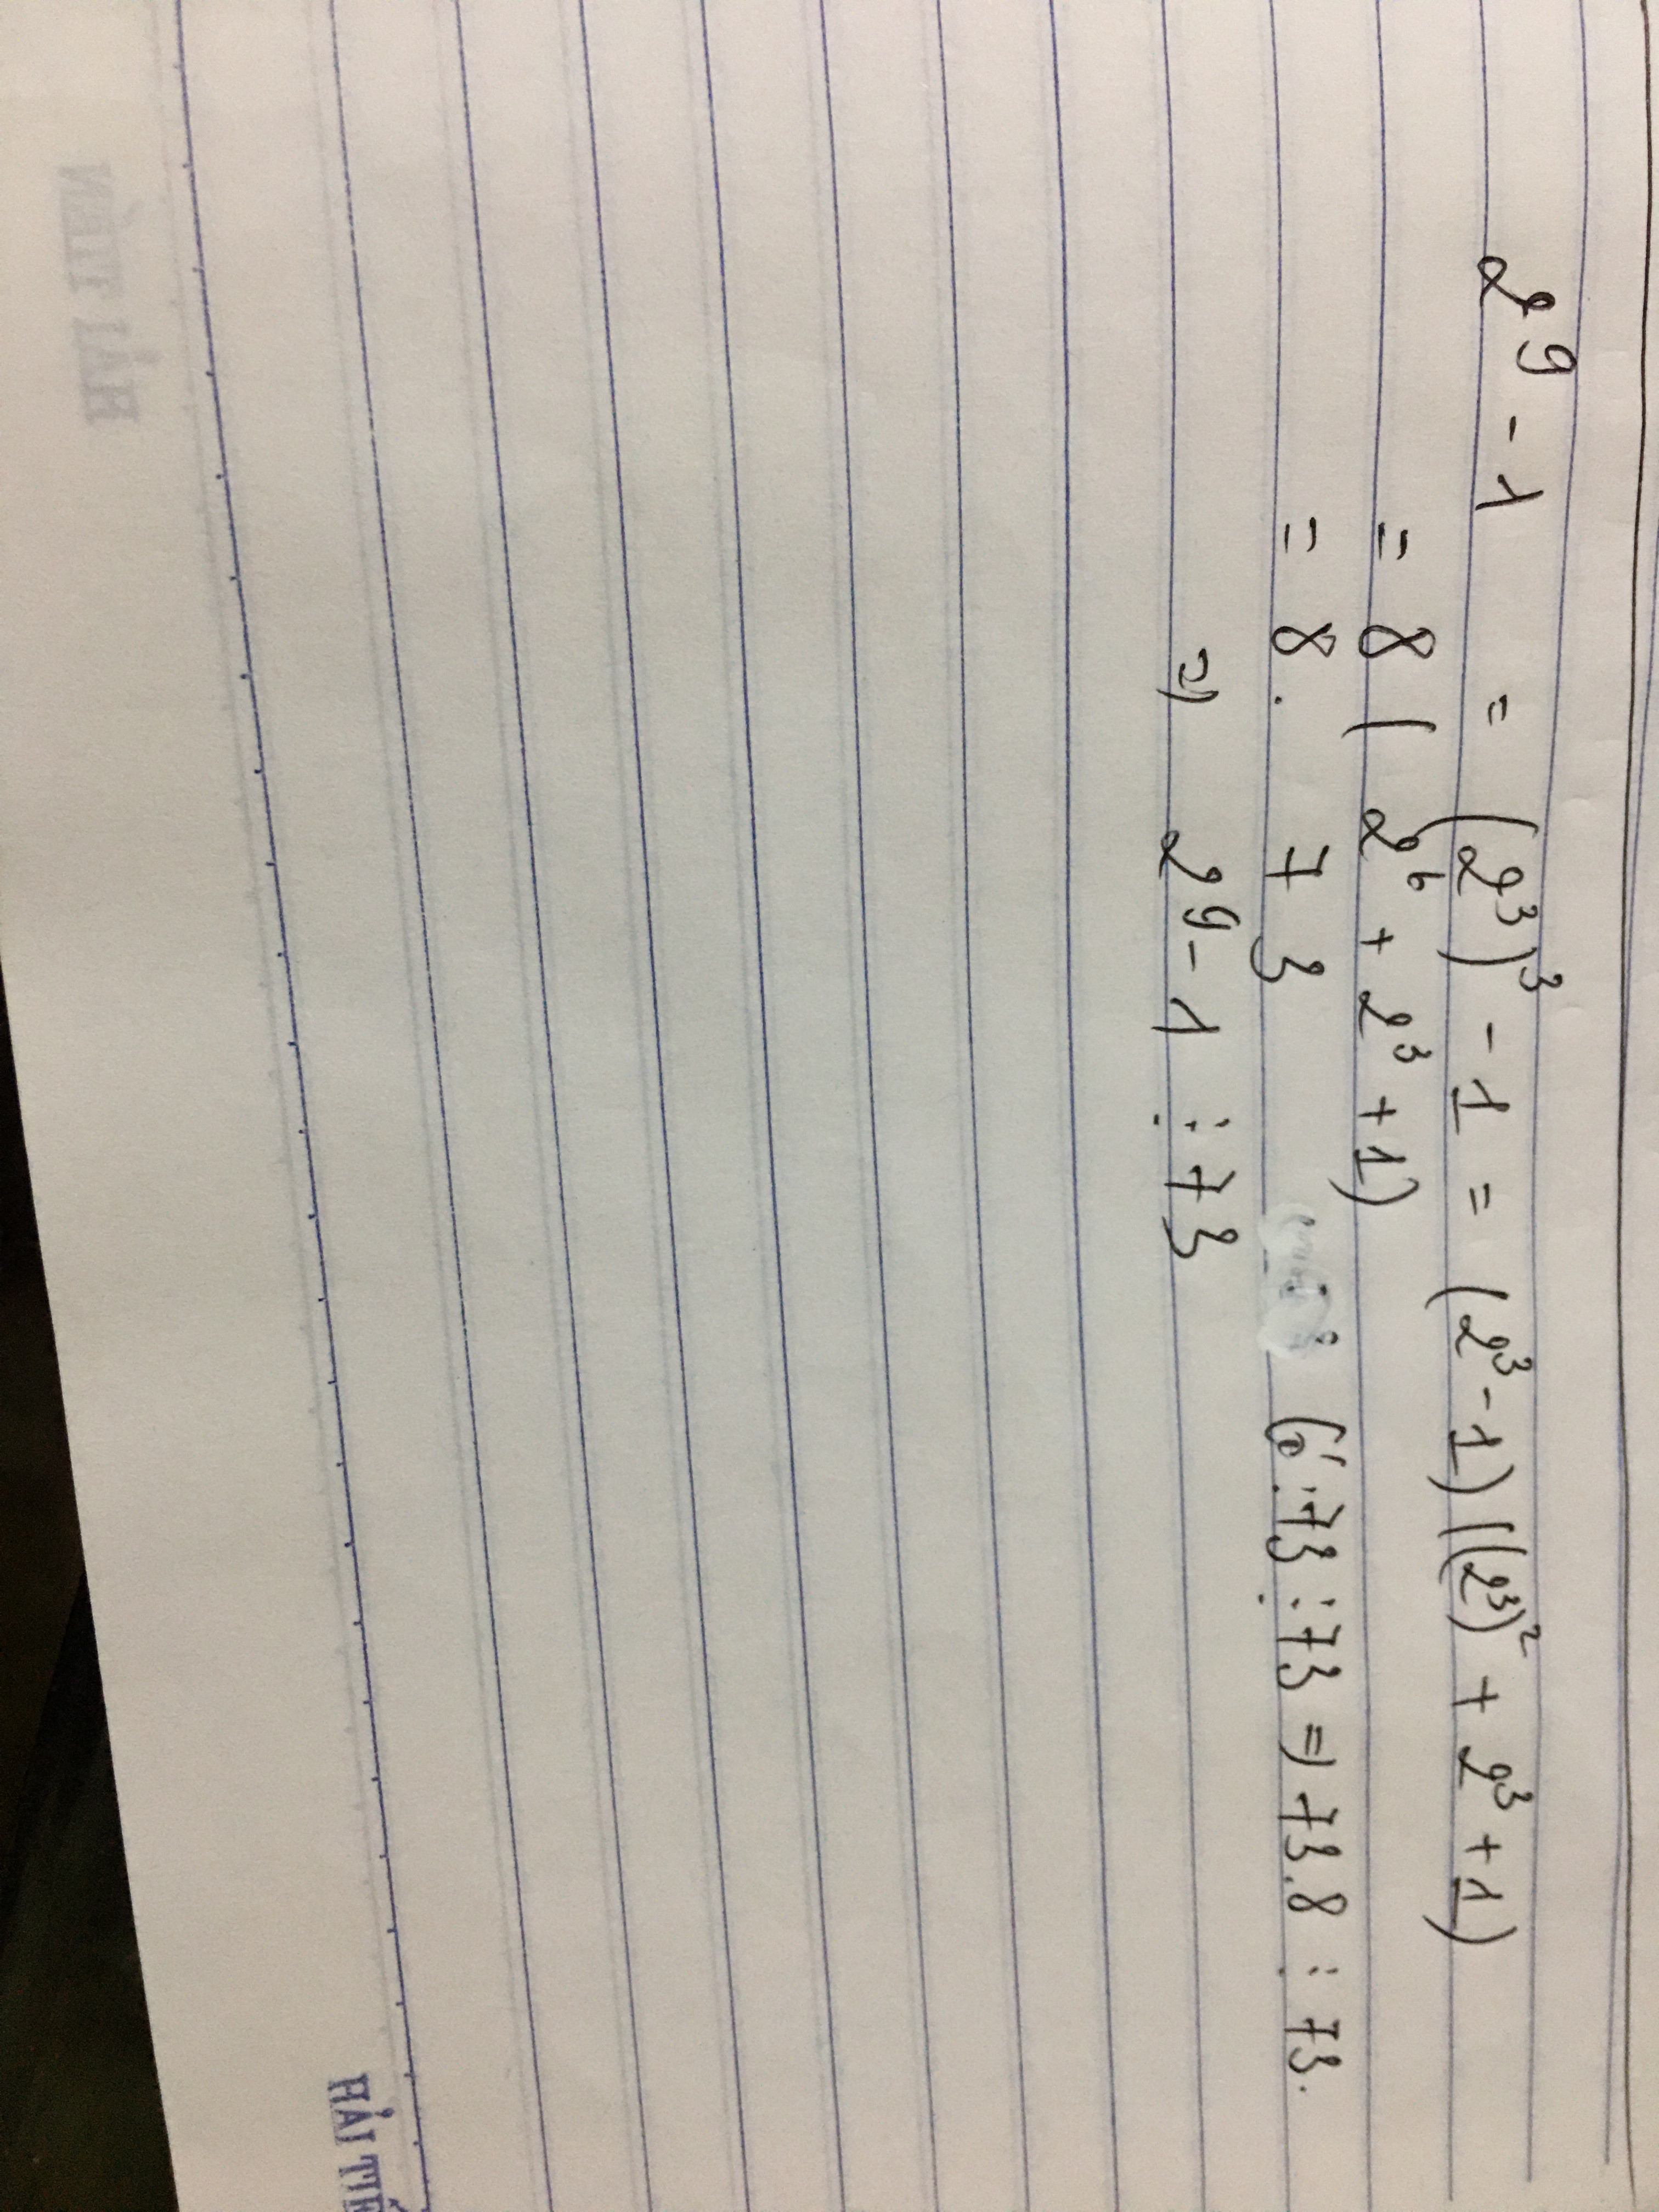 2⁹ - 1 = (2³)³ - 1 = (2³ - 1)((2³)² + 2³ + 1)
= 8 ( 2⁶ + 2³ + 1)
= 8 . 73 Có 73 ⋮ 73 => 73.8 ⋮ 73.
=> 2⁹ - 1 ⋮ 73
HẢI TIẾN
HẢI TIẾN